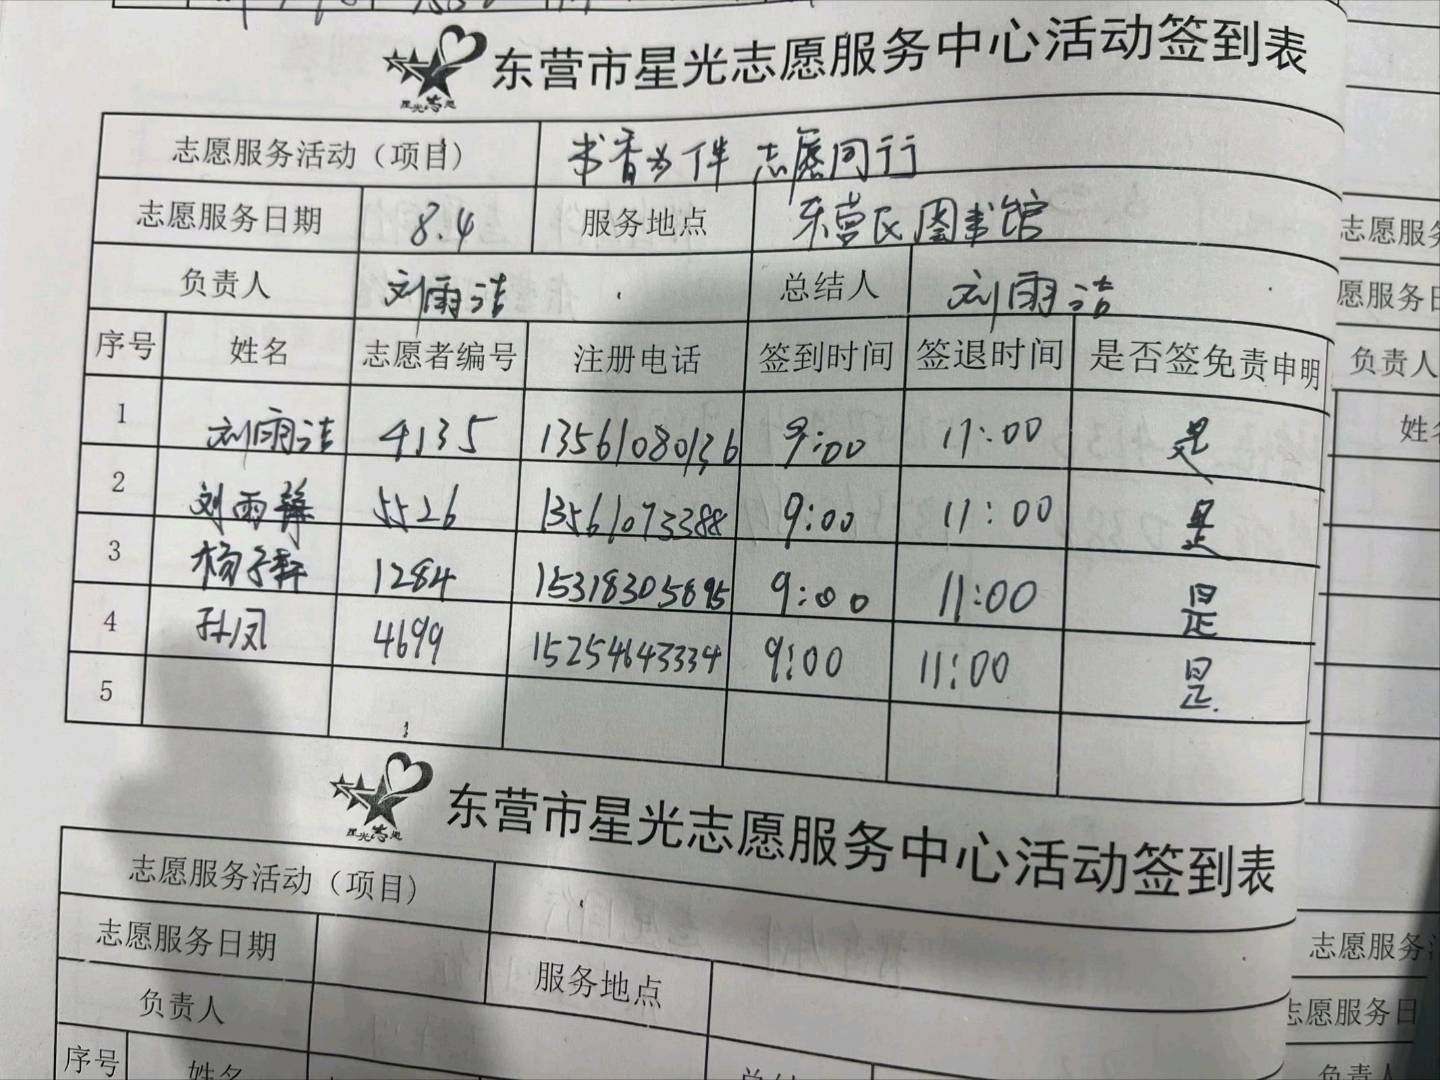 东营市星光志愿服务中心活动签到表
星光志愿
志愿服务活动（项目） 书香为伴 志愿同行
志愿服务日期 8.4 服务地点 东营区图书馆
负责人 刘雨洁 总结人 刘雨洁
序号 姓名 志愿者编号 注册电话 签到时间 签退时间 是否签免责申明
1 刘雨洁 4135 13561080136 9:00 11:00 是
2 刘雨 5526 13561073388 9:00 11:00 是
3 杨子轩 1284 15318305895 9:00 11:00 是
4 孙凤 4699 15254643334 9:00 11:00 是
5
东营市星光志愿服务中心活动签到表
星光志愿
志愿服务活动（项目）
志愿服务日期 服务地点
负责人
序号 姓名
志愿服务
愿服务日
负责人
姓名
志愿服务
志愿服务日
负责人